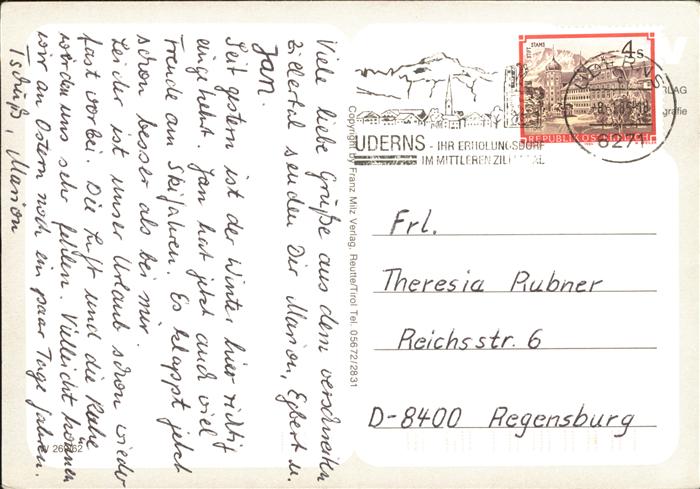 Viele liebe Grüße aus dem verschneiten
Zillertal senden Dir Marion, Egbert u.
Jan.
Seit gestern ist der Winter hier richtig
eingekehrt. Jan hat jetzt auch viel
Freude am Skifahren. Es klappt jetzt
schon besser als bei mir.
Leider ist unser Urlaub schon wieder
fast vorbei. Die Luft und die Ruhe
werden uns sehr fehlen. Vielleicht können
wir an Ostern noch ein paar Tage fahren.
Tschüß, Marion
Copyright by Franz Milz Verlag, Reutte/Tirol Tel. 05672/2831
STIFT STAMS
4 s
REPUBLIK ÖSTERREICH
UDERNS
6271
UDERNS - IHR ERHOLUNGSDORF
IM MITTLEREN ZILLERTAL
Frl.
Theresia Rubner
Reichsstr. 6
D-8400 Regensburg